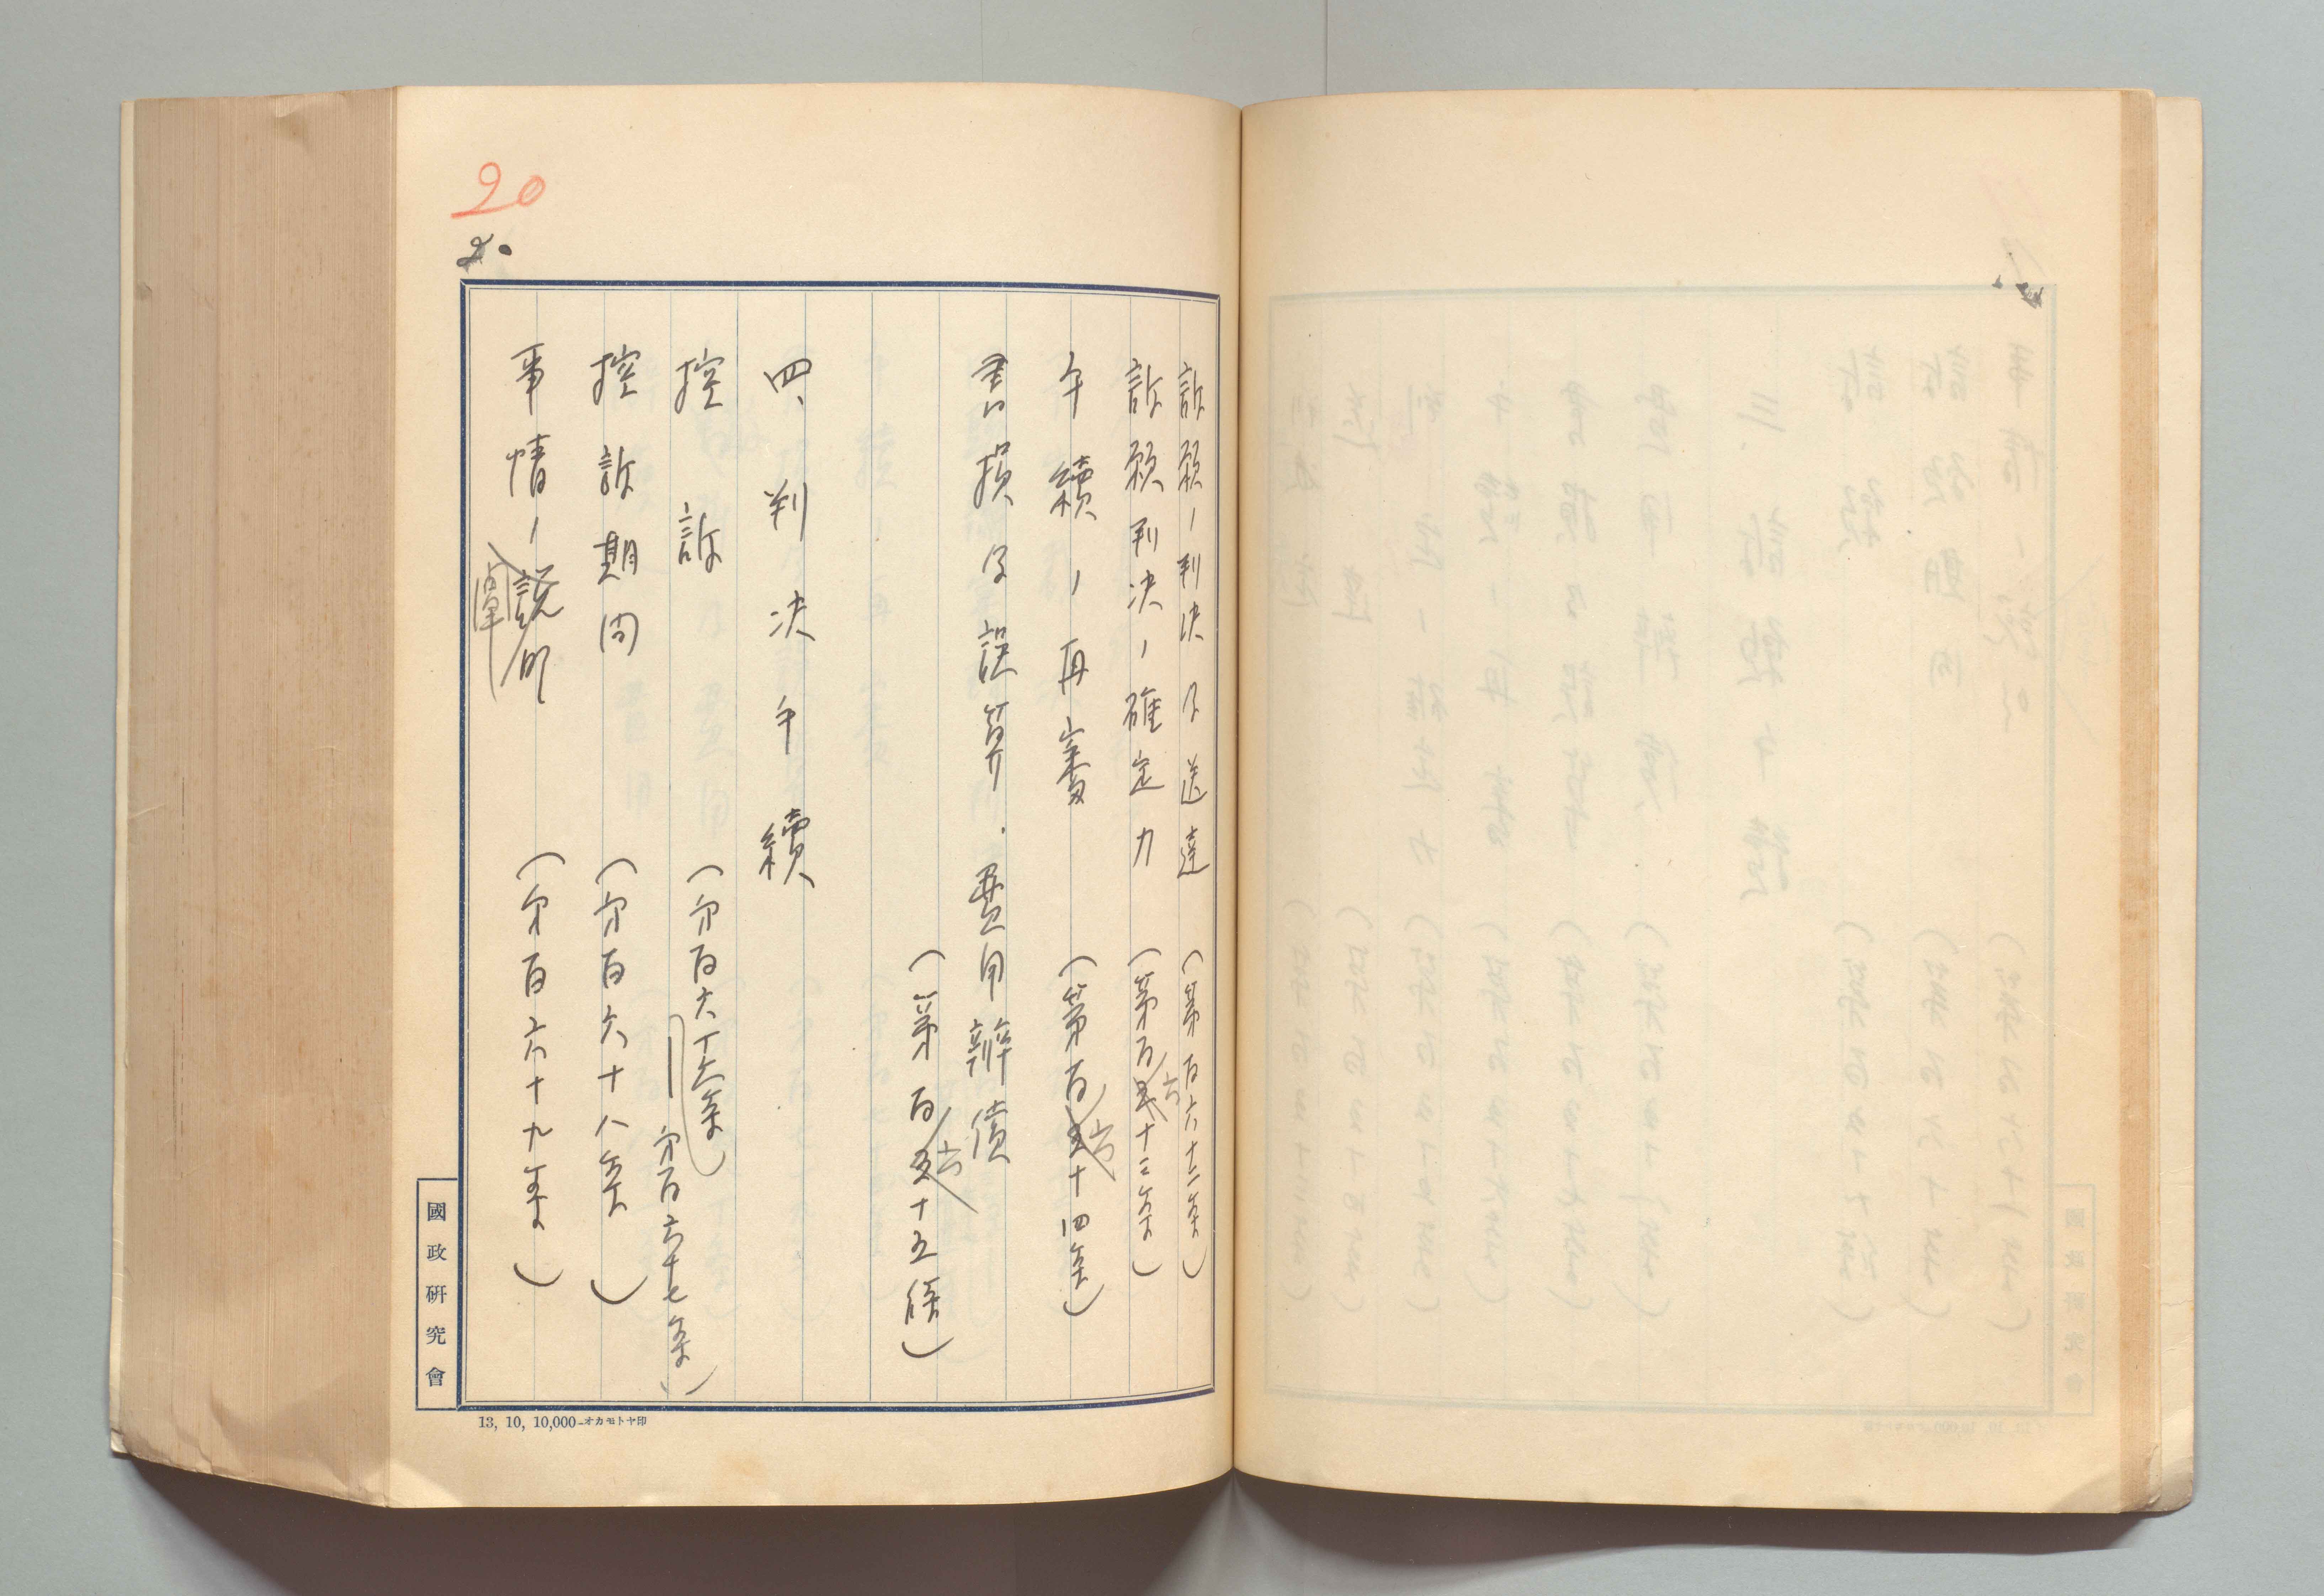 20
20
訴願ノ判決及送達 (第百六十二条)
訴願判決ノ確定力 (第百六十三条)
手続ノ再審 (第百六十四条)
書損及誤算.費用辨償
(第百六十五條)
四、判決手續
控訴 (第百六十六条
第百六十七条)
控訴期間 (第百六十八条)
事情ノ説明 (第百六十九条)
闡
國政研究會
13, 10, 10,000-オカモトヤ印